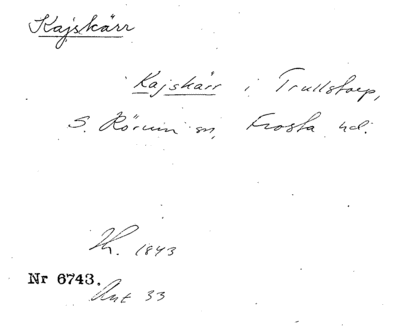 Kajskärr
Kajskärr i Trullstorp,
S. Rörum sn, Frosta hd.
Kh. 1843
Nr 6743.
Ant 33